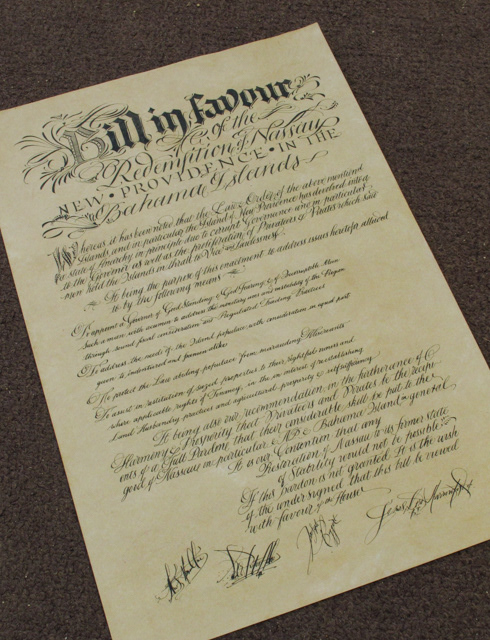 Bill in favour
of the
Redemption of Nassau
NEW • PROVIDENCE • IN THE
Bahama Islands
Whereas it has been noted that the Law & Order of the above mentioned
Islands, and in particular, the Island of New Providence has devolved into a
state of Anarchy in principle due to corrupt Governance who in particular
to the Governor as well as the proliferation of Privateers & Pirates which said
men hold the Islands in thrall to Vice and Lawlessness.
It being the purpose of this enactment to address issues heretofor allowed
to by the following means
To appoint a Governor of Good Standing & God Fearing & of Incorruptible Mien
Such a man with women to address the monetary and of the
through sound fiscal consideration and Negotiated Trading Practices
To address the needs of the Island populace with consideration in equal part
given to indentured and freeman alike
To protect the Law abiding populace from marauding Miscreants
To assist in restitution of seized properties to their rightful owners and
where applicable rights of Tenancy, in the interest of reestablishing
Land Husbandry practices and agricultural prosperity & selfsufficiency
It being also our recommendation in the furtherance of
Harmony & Prosperity that Privateers and Pirates be the recipi-
ents of a Full Pardon that their considerable skill be put to the
good of Nassau in particular & the Bahama Islands in general
It is our Contention that any
Restoration of Nassau to its former state
of Stability would not be possible
If this pardon is not granted. It is the wish
of the undersigned that this bill be viewed
with favour of the House